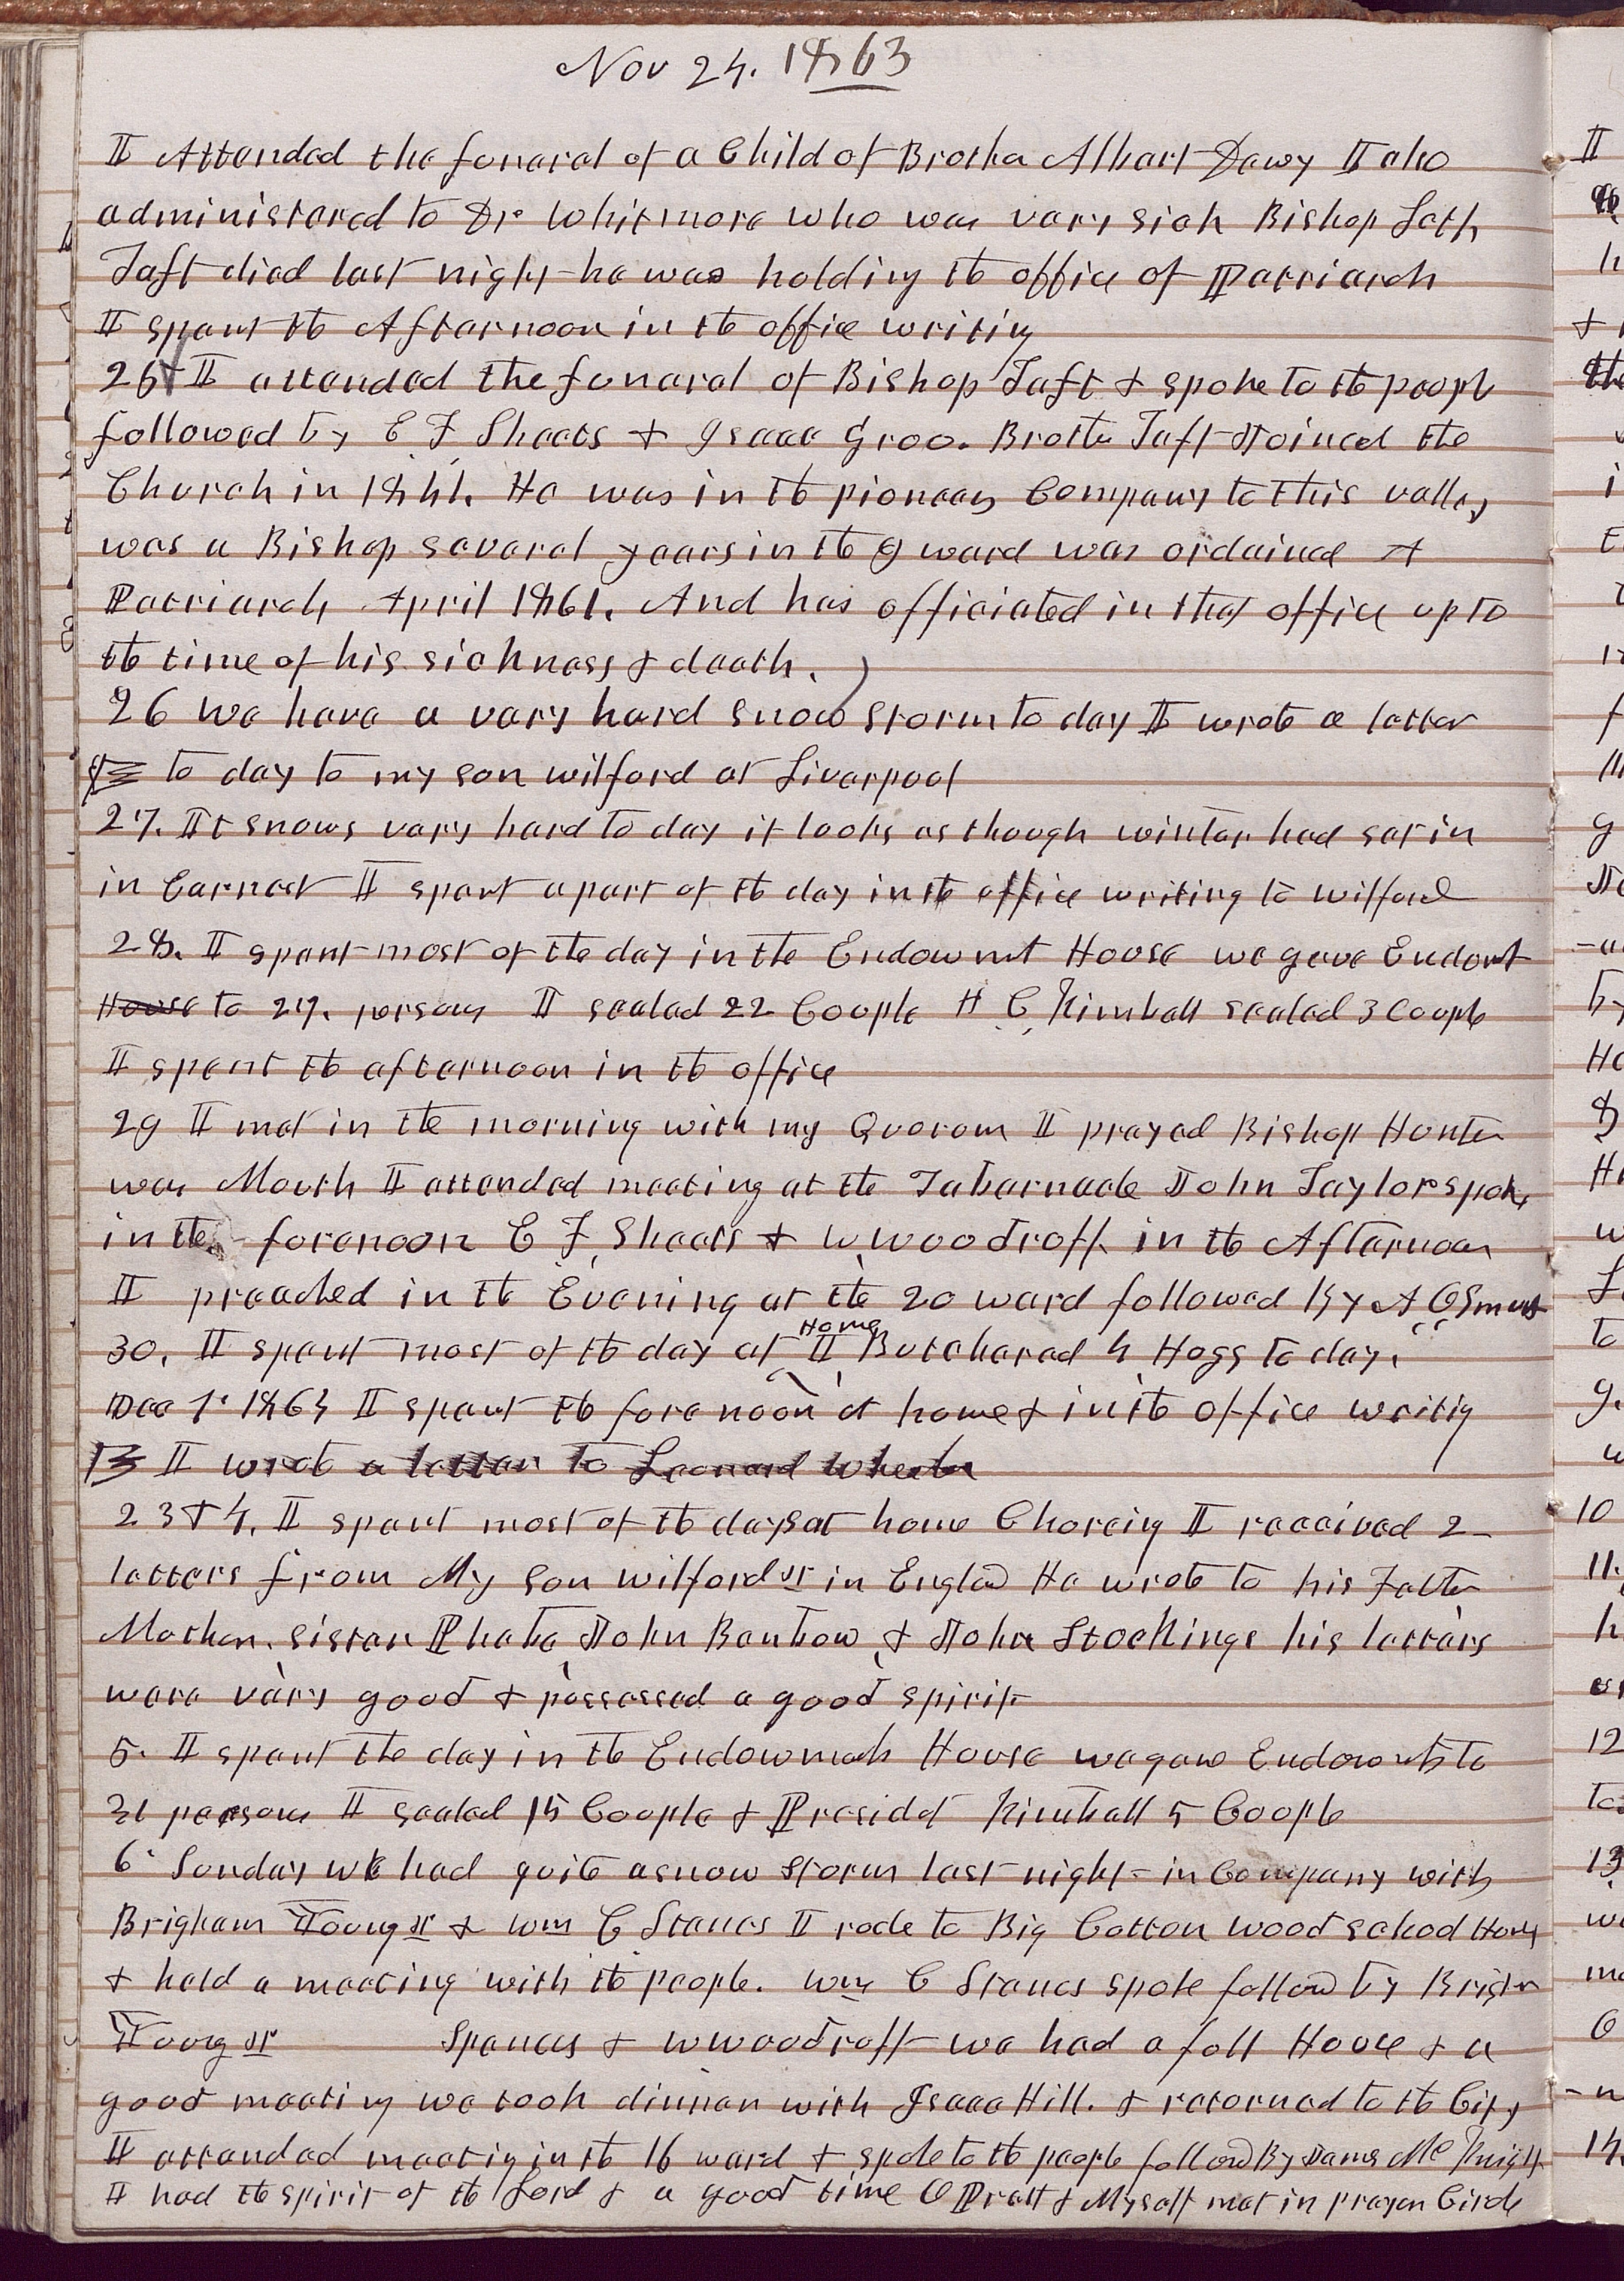 Nov 24. 1863
I Attended the funeral of a Child of Brother Albert Dewy I also
administered to Dr Whitmore who was very sick Bishop Seth
Taft died last night he was holding the office of Patriarch
I spent the Afternoon in the office writing
25 I attended the funeral of Bishop Taft & spoke to the people
followed by E F Sheets & Isaac Groo. Brother Taft Joined the
Church in 1841. He was in the pioneer Company to this valley
was a Bishop several years in the 9 ward was ordained A
Patriarch April 1861. And has officiated in that office up to
the time of his sickness & death.
26 We have a very hard snow storm to day I wrote a letter
to day to my son wilford at Liverpool
27. It snows vary hard to day it looks as though winter had set in
in Earnest I spent a part of the day in the office writing to wilford
28. I spent most of the day in the Endowmt House we gave Endowt
House to 27. persons I sealed 22 Couple H C Kimball sealed 3 Couple
I spent the afternoon in the office
29 I met in the morning with my Quorum I prayed Bishop Hunter
was Mouth I attended meeting at the Tabernacle John Taylor spoke
in the forenoon E F Sheets & W Woodruff in the Afternoon
I preached in the Evening at the 20 ward followed By A O Smoot
Home
30. I spent most of the day at I Butchered 4 Hogs to day.
Dec 1. 1863 I spent the fore noon at home & in the office writing
I wrote a letter to Leonard Wheeler
2 3 & 4. I spent most of the days at home Choreing I received 2
letters from My Son Wilford Jr in Englad He wrote to his Father
Mother, sister Phebe, John Benbow, & John Stockings his letters
were vary good & possessed a good spirit
5. I spent the day in the Endowmet House we gave Endowmts to
31 persons I sealed 15 Couple & Presidet Kimball 5 Couple
6. Sunday we had quite a snow storm last night in Company with
Brigham Young Jr & Wm C Stanes I rode to Big Cotton wood school House
& held a meeting with the people. Wm C Stanes spoke follow by Brighm
Young Jr Spences & W Woodruff we had a full House & a
good meeting we took dinner with Isaac Hill. & returned to the City
I attended meetig in the 16 ward & spoke to the people followd By James Mc Knight
I had the spirit of the Lord & a good time O Pratt & Myself met in prayer Circle